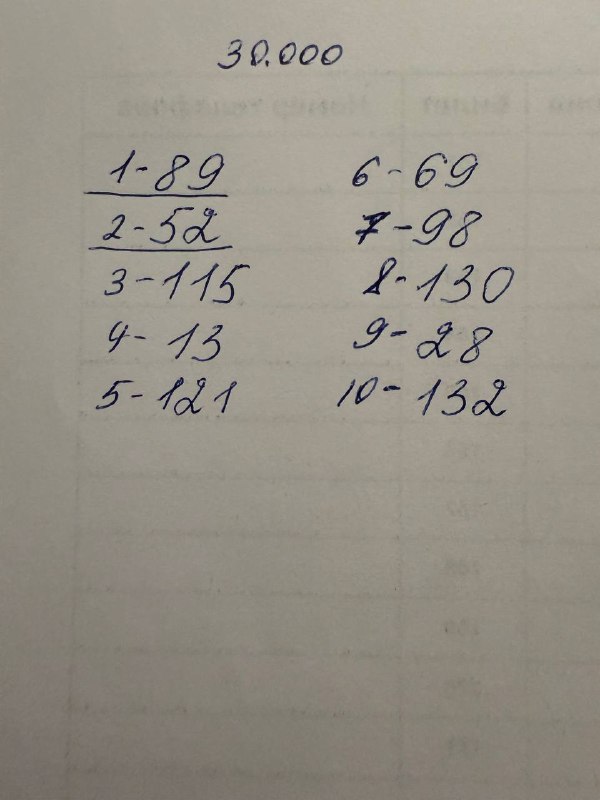 30.000
1-89
2-52
3-115
4-13
5-121
6-69
7-98
8-130
9-28
10-132